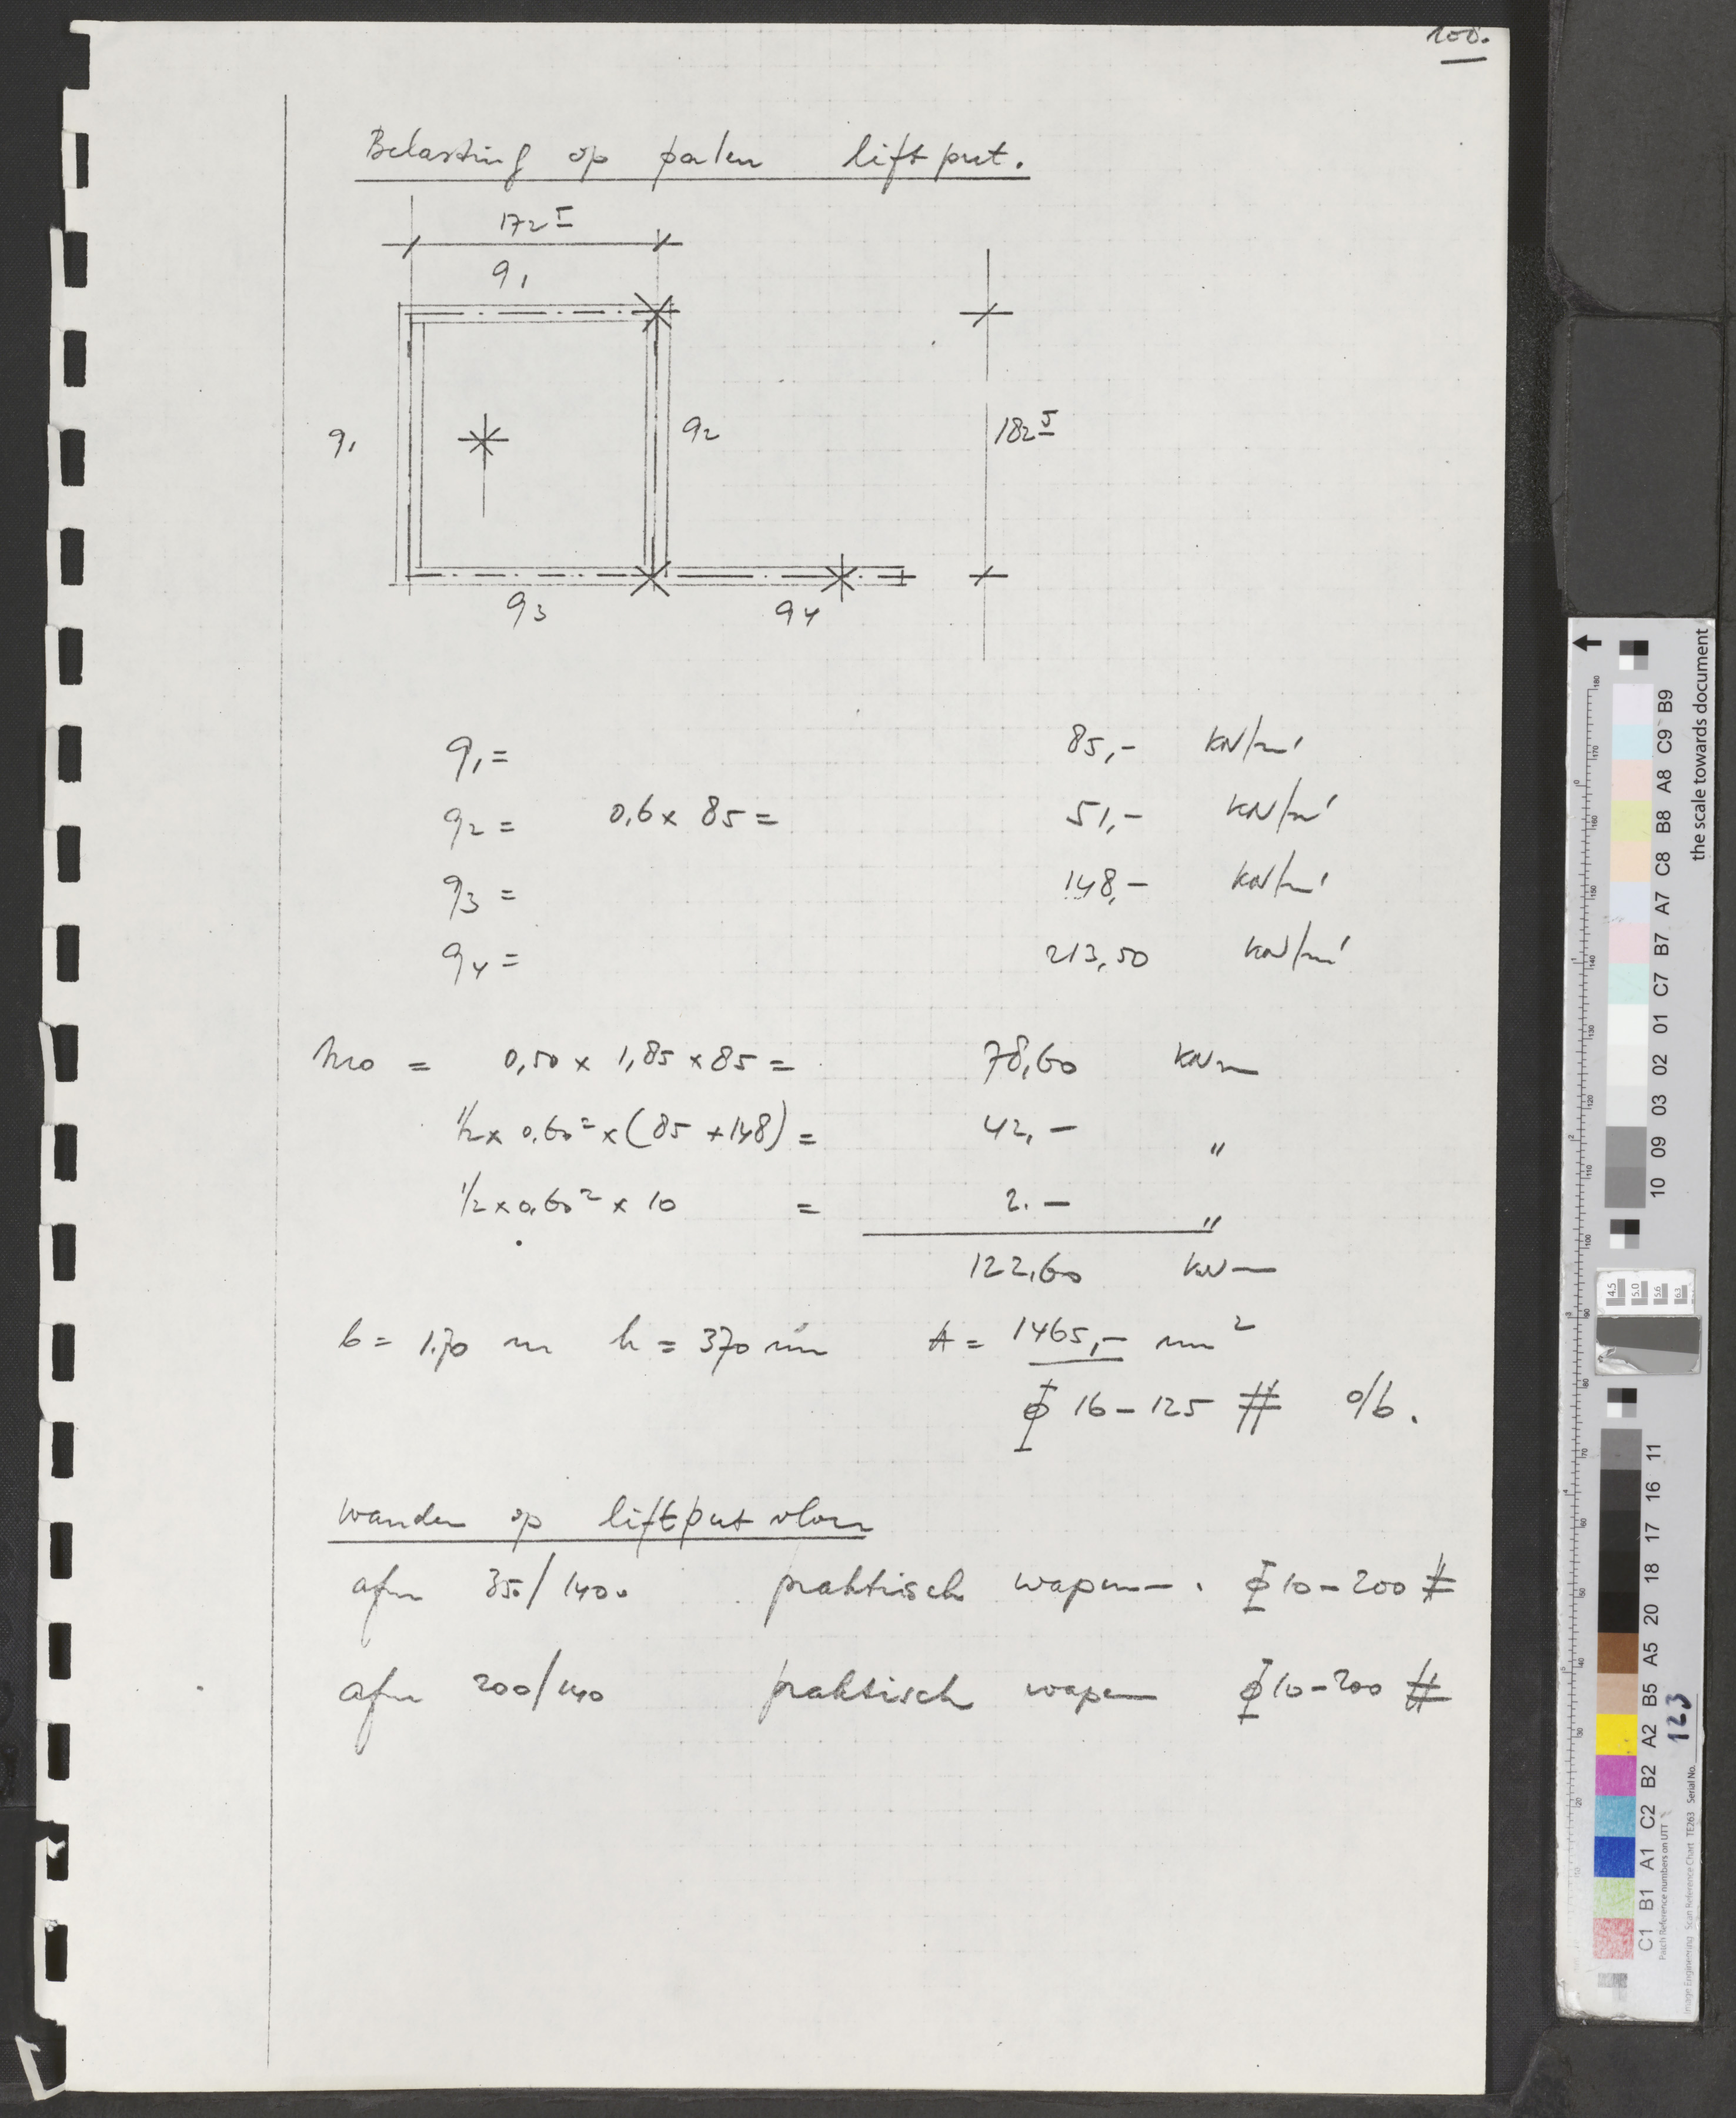 100.
Belasting op palen liftput.
172⁵
q1
q1
q2
182⁵
q3
q4
q1 = 85,- kN/m'
q2 = 0,6 x 85 = 51,- kN/m'
q3 = 148,- kN/m'
q4 = 213,50 kN/m'
Mo = 0,50 x 1,85 x 85 = 78,60 kNm
1/2 x 0,60² x (85 + 148) = 42,- "
1/2 x 0,60² x 10 = 2.- "
122,60 kNm
b = 1.70 m h = 370 mm A = 1465,- mm²
ϕ 16 - 125 # o/b.
wanden op liftput vloer
afm 350/1400 praktisch wapenen. ϕ 10 - 200 #
afm 200/140 praktisch wapenen ϕ 10 - 200 #
the scale towards document
B9
C9
A8
B8
C8
A7
B7
C7
01
02
03
09
10
4.5
5.0
5.6
6.3
11
16
17
18
20
A5
B5
A2
B2
C2
A1
B1
C1
Patch Reference numbers on UTT
Image Engineering Scan Reference Chart TE263 Serial No. 123